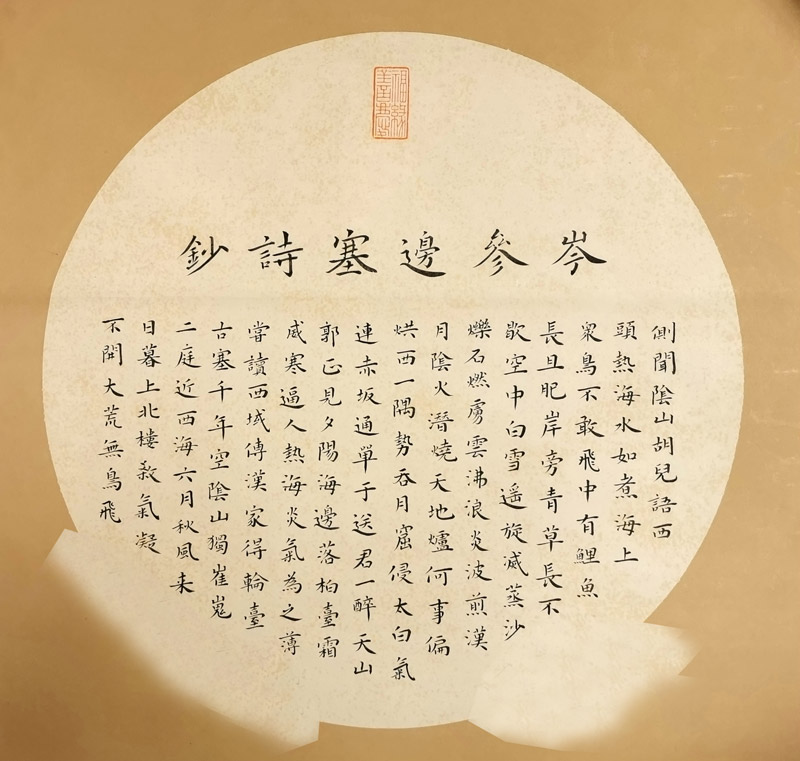 福緣善慶
岑參邊塞詩鈔
側聞陰山胡兒語西
頭熱海水如煮海上
眾鳥不敢飛中有鯉魚
長且肥岸旁青草長不
歇空中白雪遥旋滅蒸沙
爍石燃虜雲沸浪炎波煎漢
月陰火潛燒天地爐何事偏
烘西一隅勢吞月窟侵太白氣
連赤坂通單于送君一醉天山
郭正見夕陽海邊落柏臺霜
威寒逼人熱海炎氣為之薄
嘗讀西域傳漢家得輪臺
古塞千年空陰山獨崔嵬
二庭近西海六月秋風来
日暮上北樓殺氣凝
不開大荒無鳥飛